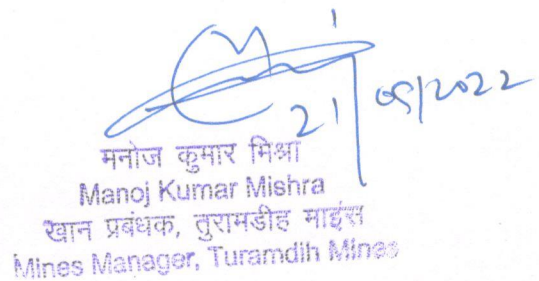 21/05/2022
मनोज कुमार मिश्रा
Manoj Kumar Mishra
खान प्रबंधक, तुरामडीह माइंस
Mines Manager, Turamdih Mines